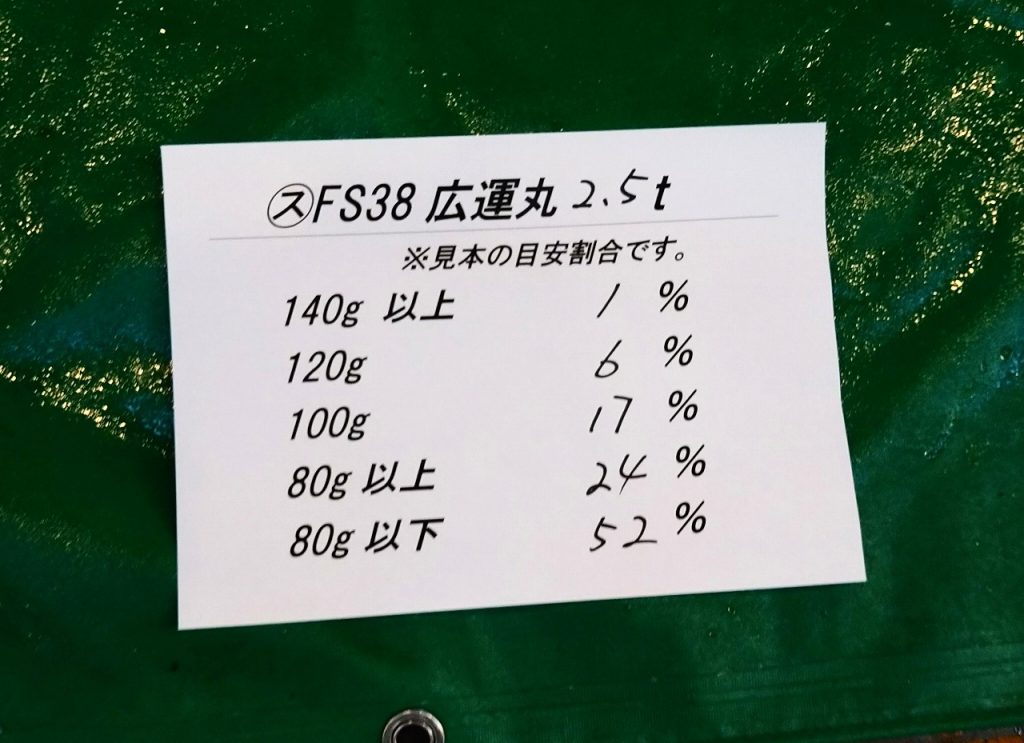 ㋜FS38 広運丸 2.5 t
※見本の目安割合です。
140g 以上 1 %
120g 6 %
100g 17 %
80g 以上 24 %
80g 以下 52 %